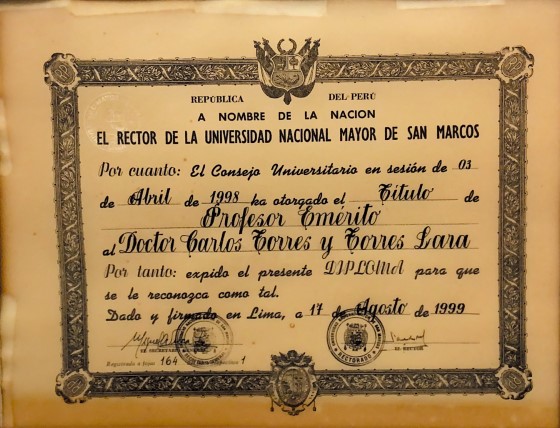 REPÚBLICA DEL PERÚ
A NOMBRE DE LA NACION
EL RECTOR DE LA UNIVERSIDAD NACIONAL MAYOR DE SAN MARCOS
Por cuanto: El Consejo Universitario en sesión de 03
de Abril de 1998 ha otorgado el Título de
Profesor Emérito
al Doctor Carlos Torres y Torres Lara
Por tanto: expido el presente DIPLOMA para que
se le reconozca como tal.
Dado y firmado en Lima, a 17 de Agosto de 1999
EL SECRETARIO EL RECTOR
RECTORADO
Registrado a fojas 164 1